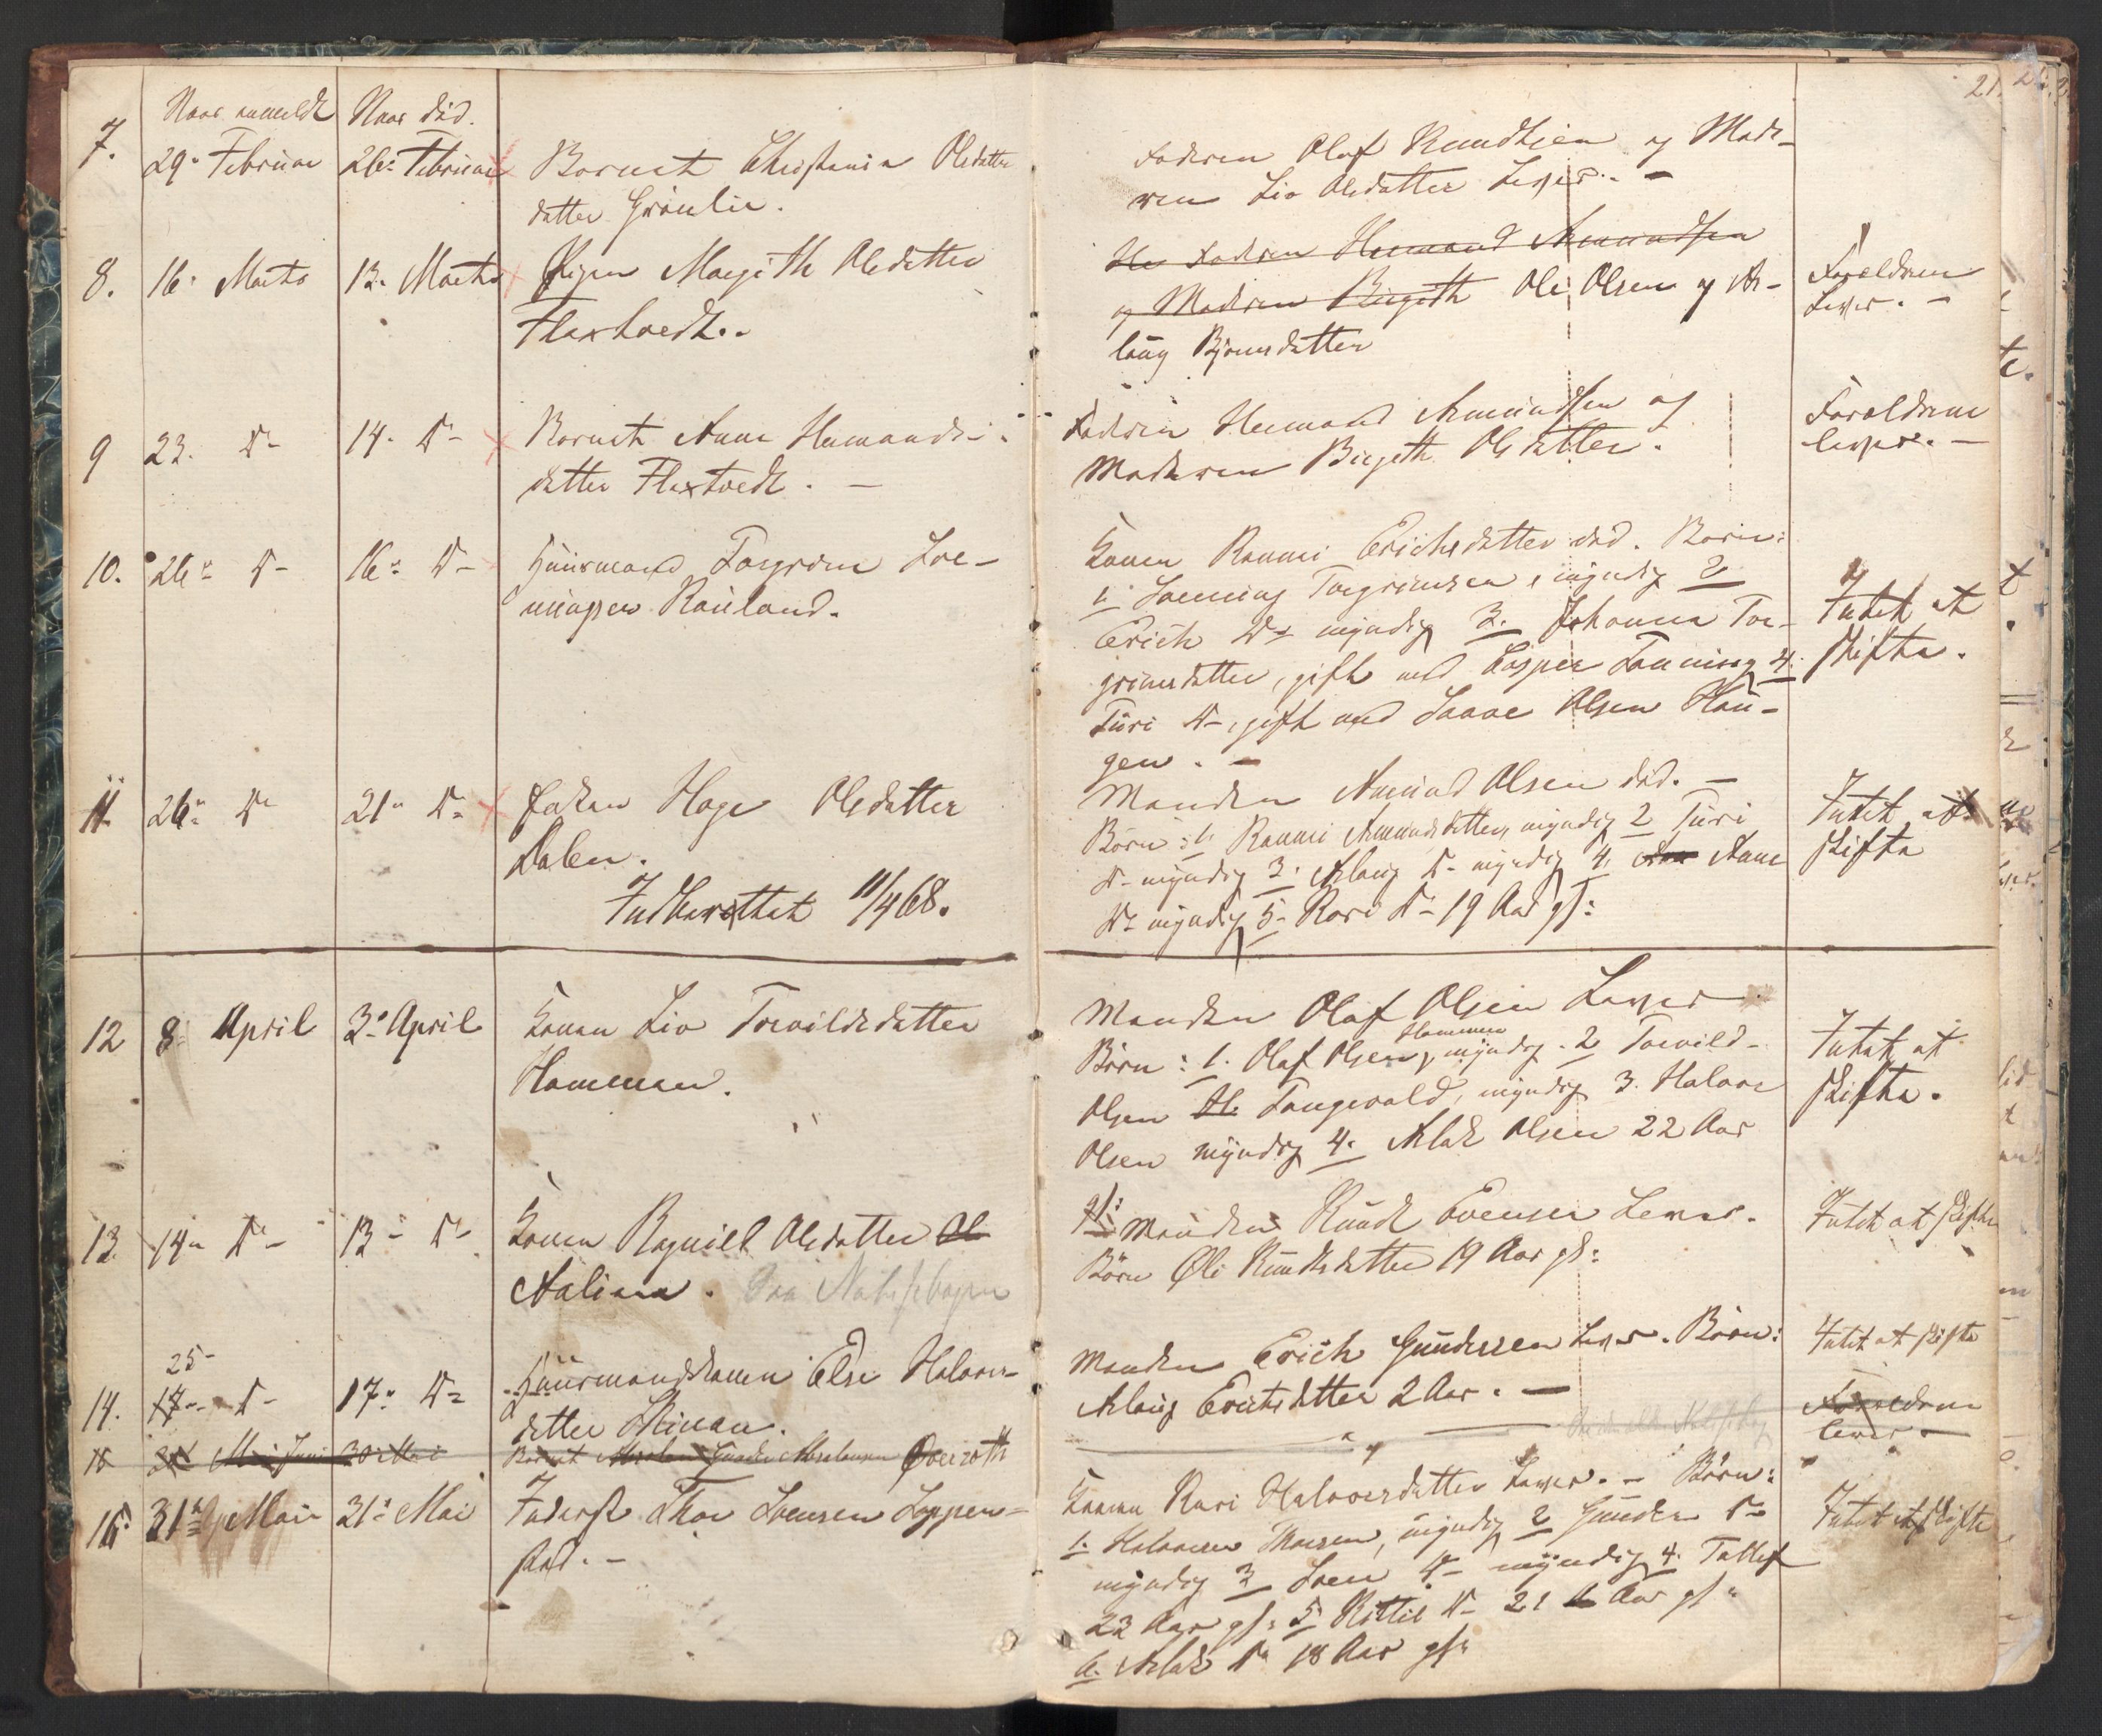 21.
Naar anmeldt Naar död.
7. 29. Februar 26. Februar Barnet Christania Olsdatter
datter Grönlie.
Faderen Olaf Rundhien og Mode-
ren Liv Olsdatter Lever. -
8. 16. Marts 13. Marts Pigen Margith Olsdatter
Flaxtvedt.
Faderen Hermand Amundsen
og Moderen Birgith Ole Olsen og As-
laug Bjørnsdatter
Forældrene
Lever. -
9 23. D- 14. D- Barnet Anne Hermands-
datter Flaxtvedt. -
Faderen Hermand Amundsen og
Moderen Birgith Olsdatter.
Forældrene
lever. -
10. 26. D- 16. D- Huusmand Torgrim
Rauland.
Konen Ranni Erichsdatter död. Børn:
1. Torgrimsen, myndig 2
Erich D- myndig 3. Johanna Tor-
grimsdatter, gift med 4.
Turi D-, gift med Olsen Hau-
gen. -
Intet at
skifte.
11. 26. D- 21. D- Enken Hage Olsdatter
Dalen.
Indberettet 11/4 68.
Manden Amund Olsen död. -
Börn: 1. Ranni Amundsdatter, myndig 2 Turi
D- myndig 3. Aslaug D- myndig 4. Anne
D- myndig 5. D- 19 Aar gl:
Intet at
skifte
12 8. April 3. April Konen Liv Torvildsdatter
Hommen.
Manden Olaf Olsen Lever
Börn: 1. Olaf Olsen Hommen, myndig. 2 Torvild-
Olsen myndig 3. Halvor
Olsen myndig 4. Aslak Olsen 22 Aar
gl:
Intet at
skifte.
13. 14. D- 13. D- Konen Ragnild Olsdatter
Manden Knud Evensen Lever.
Börn Øli Knudsdatter 19 Aar gl:
Intet at skifte
25-
14. 17. D- 17. D- Huusmandskonen Else Halvors-
datter
Manden Erich Gundersen Lever. Börn:
Aslaug Erichsdatter 2 Aar. -
Intet at skifte
15 Mai Juni 30 Mai Barnet Gunder
Forældrene
lever -
15. 31. Mai 31. Mai Inderst Thor
stad. -
Konen Kari Halvorsdatter Lever. - Börn:
1. Halvor Thorsen, myndig 2 Gunder D-
myndig 3 D- myndig 4. Tallef
22 Aar gl: 5 Kittil D- 21 Aar gl:
6. Aslak D- 18 Aar gl:
Intet at skifte